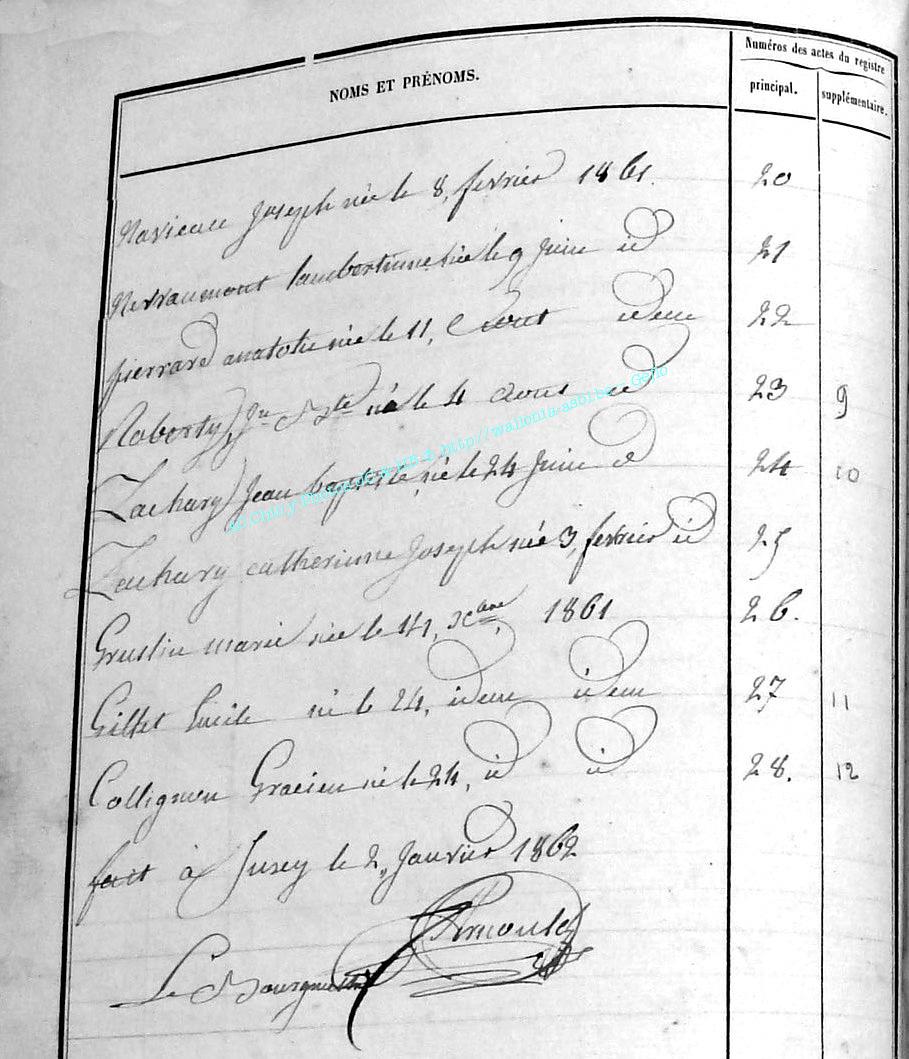 NOMS ET PRÉNOMS.
Numéros des actes du registre
principal.
supplémentaire.
Joseph née le 8, fevrier 1861. 20
Nerraumont lambertinne née le 9 Juin id 21
pierrard anatolie née le 11, aout idem 22
Roberty Jn Bte né le 4 aout id 23 9
Zachary Jean baptiste né le 24 Juin id 24 10
Zachary catherinne Joseph née 3, fevrier id 25
Gruslin marie née le 14, Xbre 1861 26.
Gillet né le 24, idem idem 27 11
Collignon Gracien né le 24, id id 28. 12
fait à Jusey le 2, Janvier 1862
Le Bourgmestre
Arnould